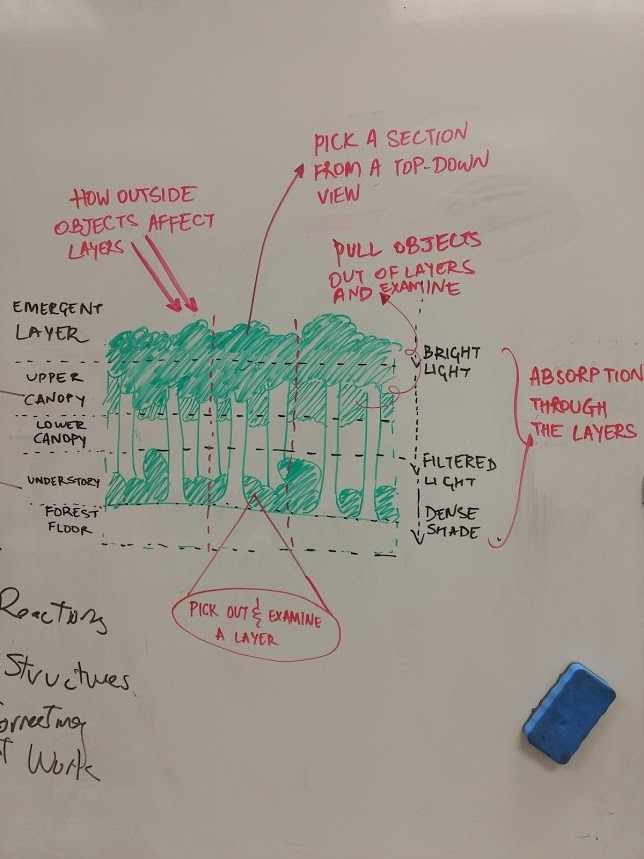 PICK A SECTION
FROM A TOP-DOWN
VIEW
HOW OUTSIDE
OBJECTS AFFECT
LAYERS
PULL OBJECTS
OUT OF LAYERS
AND EXAMINE
EMERGENT
LAYER
UPPER
CANOPY
LOWER
CANOPY
UNDERSTORY
FOREST
FLOOR
BRIGHT
LIGHT
FILTERED
LIGHT
DENSE
SHADE
ABSORPTION
THROUGH
THE LAYERS
PICK OUT & EXAMINE
A LAYER
Reactions
Structures
Work